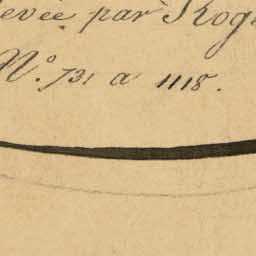 evée par Rog
N.º 731 a 1118.